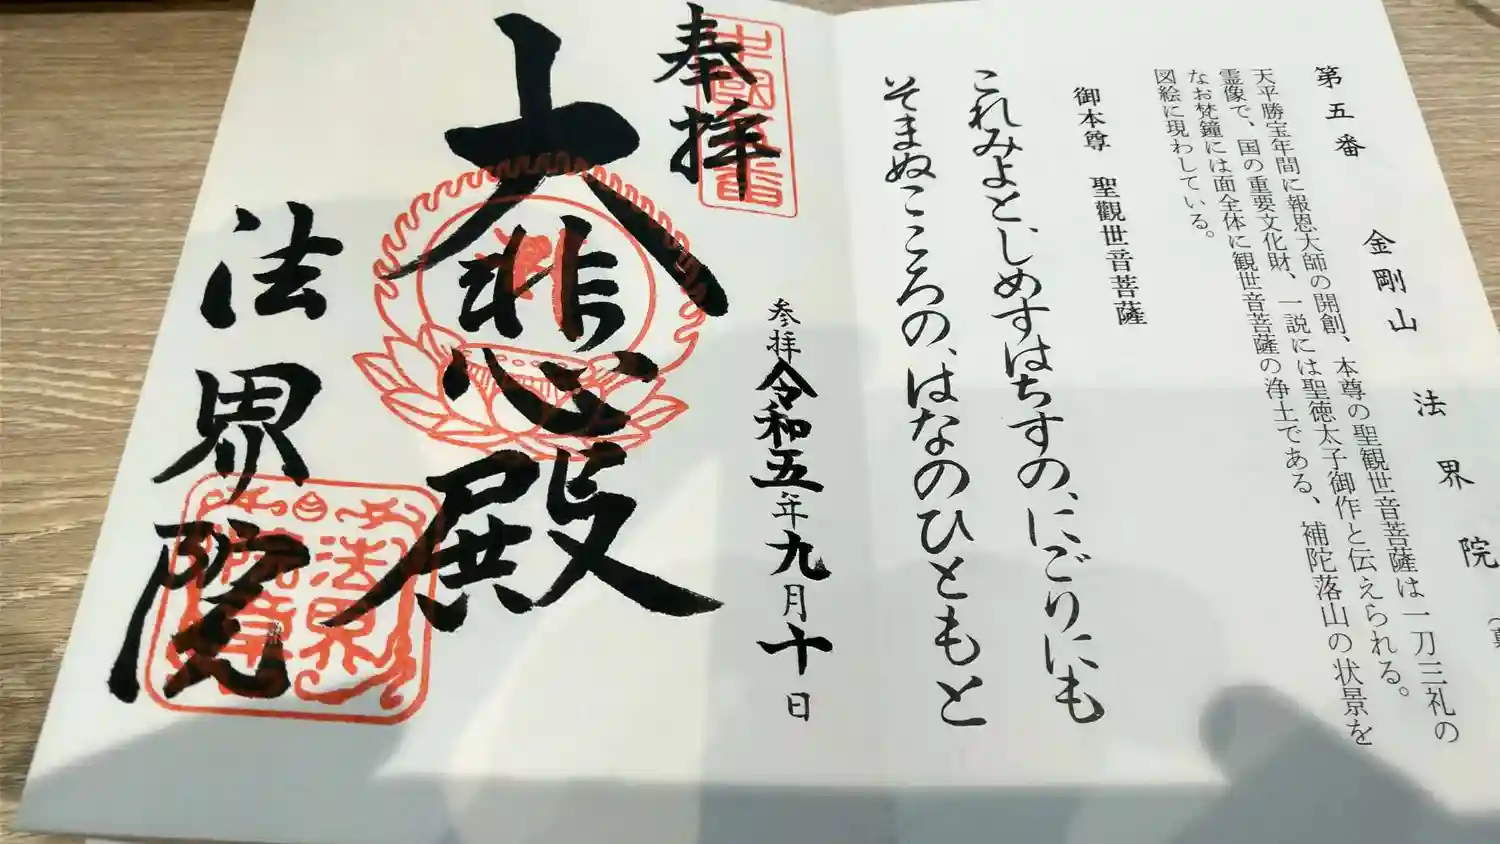 第五番　金剛山　法界院
天平勝宝年間に報恩大師の開創、本尊の聖観世音菩薩は一刀三礼の
霊像で、国の重要文化財、一説には聖徳太子御作と伝えられる。
なお梵鐘には面全体に観世音菩薩の浄土である、補陀落山の状景を
図絵に現わしている。
御本尊　聖觀世音菩薩
これみよと、しめすはちすの、にごりにも
そまぬこころの、はなのひともと
奉拝
中國五番
参拝令和五年九月十日
大悲心殿
法界院
法界
院章